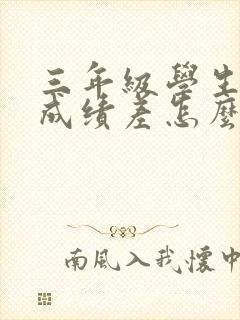 三年級學生
成績差怎麼
南風入我懷中